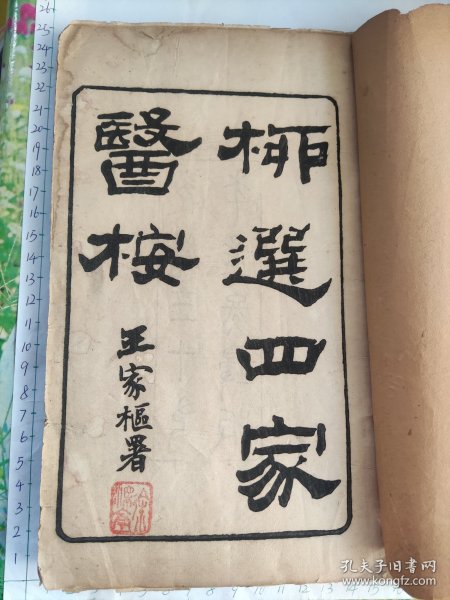 桺選四家
醫桉
王家樞署
26
25
24
23
22
21
20
19
18
17
16
15
14
13
12
11
10
9
8
7
6
5
4
3
2
1
孔夫子旧书网
book.kongfz.com